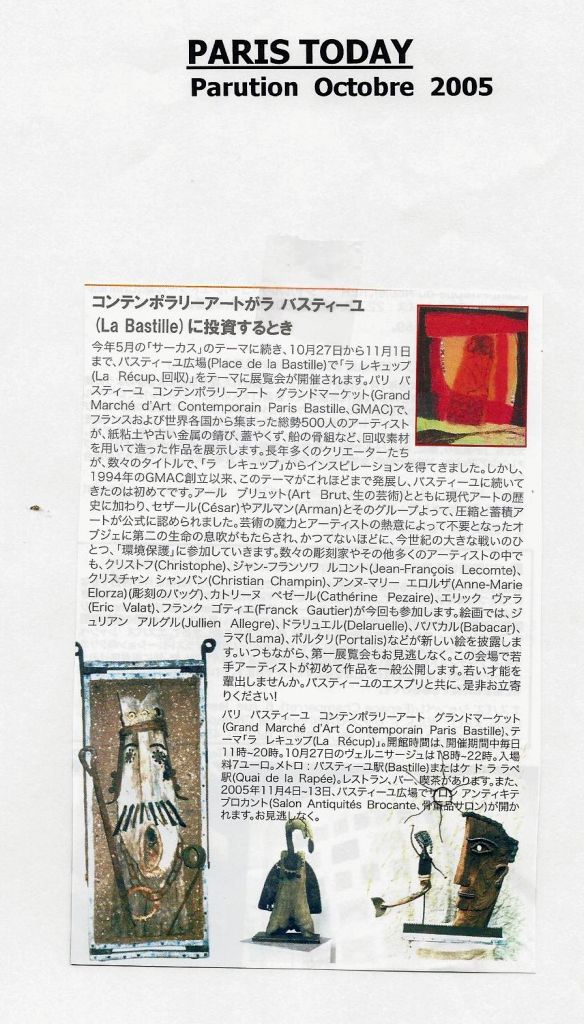 PARIS TODAY
Parution Octobre 2005
コンテンポラリーアートがラ バスティーユ
(La Bastille)に投資するとき
今年5月の「サーカス」のテーマに続き、10月27日から11月1日
まで、バスティーユ広場(Place de la Bastille)で「ラ レキュップ
(La Récup、回収)」をテーマに展覧会が開催されます。パリ バ
スティーユ コンテンポラリーアート グランドマーケット(Grand
Marché d'Art Contemporain Paris Bastille、GMAC)で、
フランスおよび世界各国から集まった総勢500人のアーティスト
が、紙粘土や古い金属の錆び、蓋やくず、船の骨組など、回収素材
を用いて造った作品を展示します。長年多くのクリエーターたち
が、数々のタイトルで、「ラ レキュップ」からインスピレーションを得てきました。しかし、
1994年のGMAC創立以来、このテーマがこれほどまで発展し、バスティーユに続いて
きたのは初めてです。アール ブリュット(Art Brut、生の芸術)とともに現代アートの歴
史に加わり、セザール(César)やアルマン(Arman)とそのグループよって、圧縮と蓄積ア
ートが公式に認められました。芸術の魔力とアーティストの熱意によって不要となったオ
ブジェに第二の生命の息吹がもたらされ、かつてないほどに、今世紀の大きな戦いのひ
とつ、「環境保護」に参加していきます。数々の彫刻家やその他多くのアーティストの中で
も、クリストフ(Christophe)、ジャン-フランソワ ルコント(Jean-François Lecomte)、
クリスチャン シャンパン(Christian Champin)、アンヌ-マリー エロルザ(Anne-Marie
Elorza)(彫刻のバッグ)、カトリーヌ ペゼール(Cathérine Pezaire)、エリック ヴァラ
(Eric Valat)、フランク ゴティエ(Franck Gautier)が今回も参加します。絵画では、ジ
ュリアン アルグル(Jullien Allegre)、ドラリュエル(Delaruelle)、ババカル(Babacar)、
ラマ(Lama)、ポルタリ(Portalis)などが新しい絵を披露しま
す。いつもながら、第一展覧会もお見逃しなく。この会場で若
手アーティストが初めて作品を一般公開します。若い才能を
輩出しませんか。バスティーユのエスプリと共に、是非お立寄
りください!
パリ バスティーユ コンテンポラリーアート グランドマーケット
(Grand Marché d'Art Contemporain Paris Bastille)、テ
ーマ「ラ レキュップ(La Récup)」。開館時間は、開催期間中毎日
11時~20時。10月27日のヴェルニサージュは18時~22時。入場
料7ユーロ。メトロ:バスティーユ駅(Bastille)またはケ ド ラ ラペ
駅(Quai de la Rapée)。レストラン、バー、喫茶があります。また、
2005年11月4日~13日、バスティーユ広場でサロン アンティキテ
ブロカント(Salon Antiquités Brocante、骨董品サロン)が開か
れます。お見逃しなく。